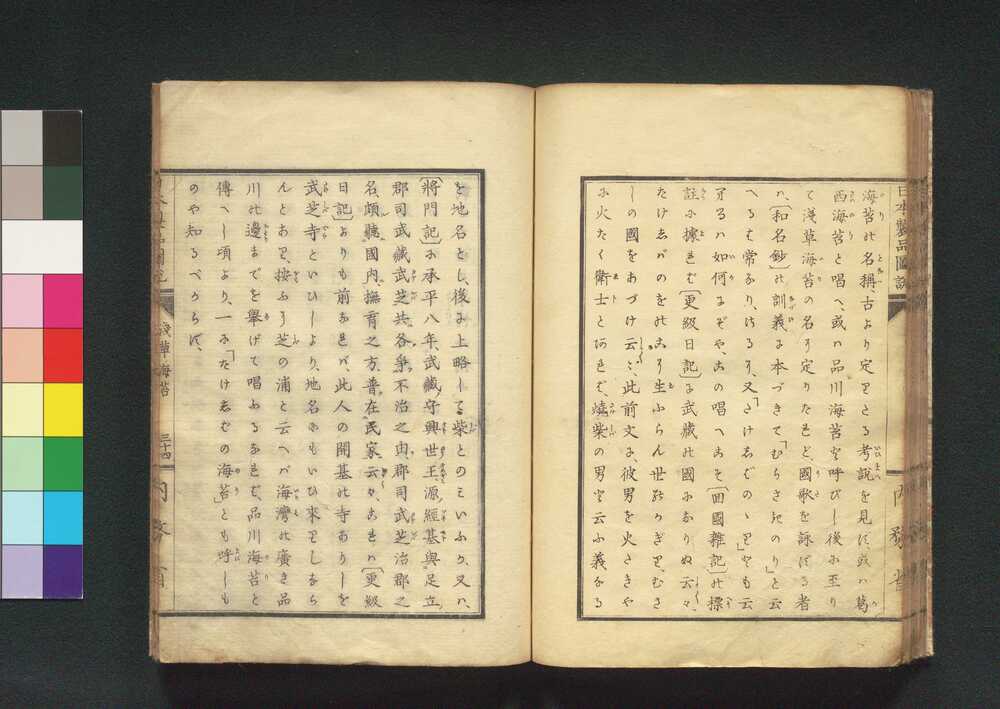 日本製品圖說
海苔の名稱、古より定まれる考說を見ず、或ハ葛
西海苔と唱へ、或ハ品川海苔と呼びし後に至り
て淺草海苔の名ハ定りたれど、國歌を詠ずる者
ハ、[和名鈔]の訓義に本づきて「むらさきのり」と云
へるも常なり、
又「たけしばのゝり」とも云
ヌるハ如何にぞや、此の唱へこそ[回國雜記]の標
註に據れば[更級日記]に武藏の國になりぬ云々、
たけしバのをのこなり
しの國をあづけ云々、此前文に、彼男を火たきや
に火たく衛士とあれば、燒柴の男と云ふ義なる
を地名とし、後に上略して柴とのミいふか、又ハ、
[將門記]に承平八年、武藏守興世王、源經基與足立
郡司武藏武芝共各爭不治之由、郡司武芝治郡之
名、頗聽國内、撫育之方、普在民家、云々、あるハ[更級
日記]よりも前なれバ、此人の開基の寺ありしを
武芝寺といひしより、地名にもいひ來りしなら
んとあり、按ふに芝の浦と云へバ海灣の廣き品
川の邊までを擧げて唱ふるなれば、品川海苔と
傳へし頃より、一に「たけしばの海苔」とも呼しも
のや知るべからず、
淺草海苔
三十四
内務省